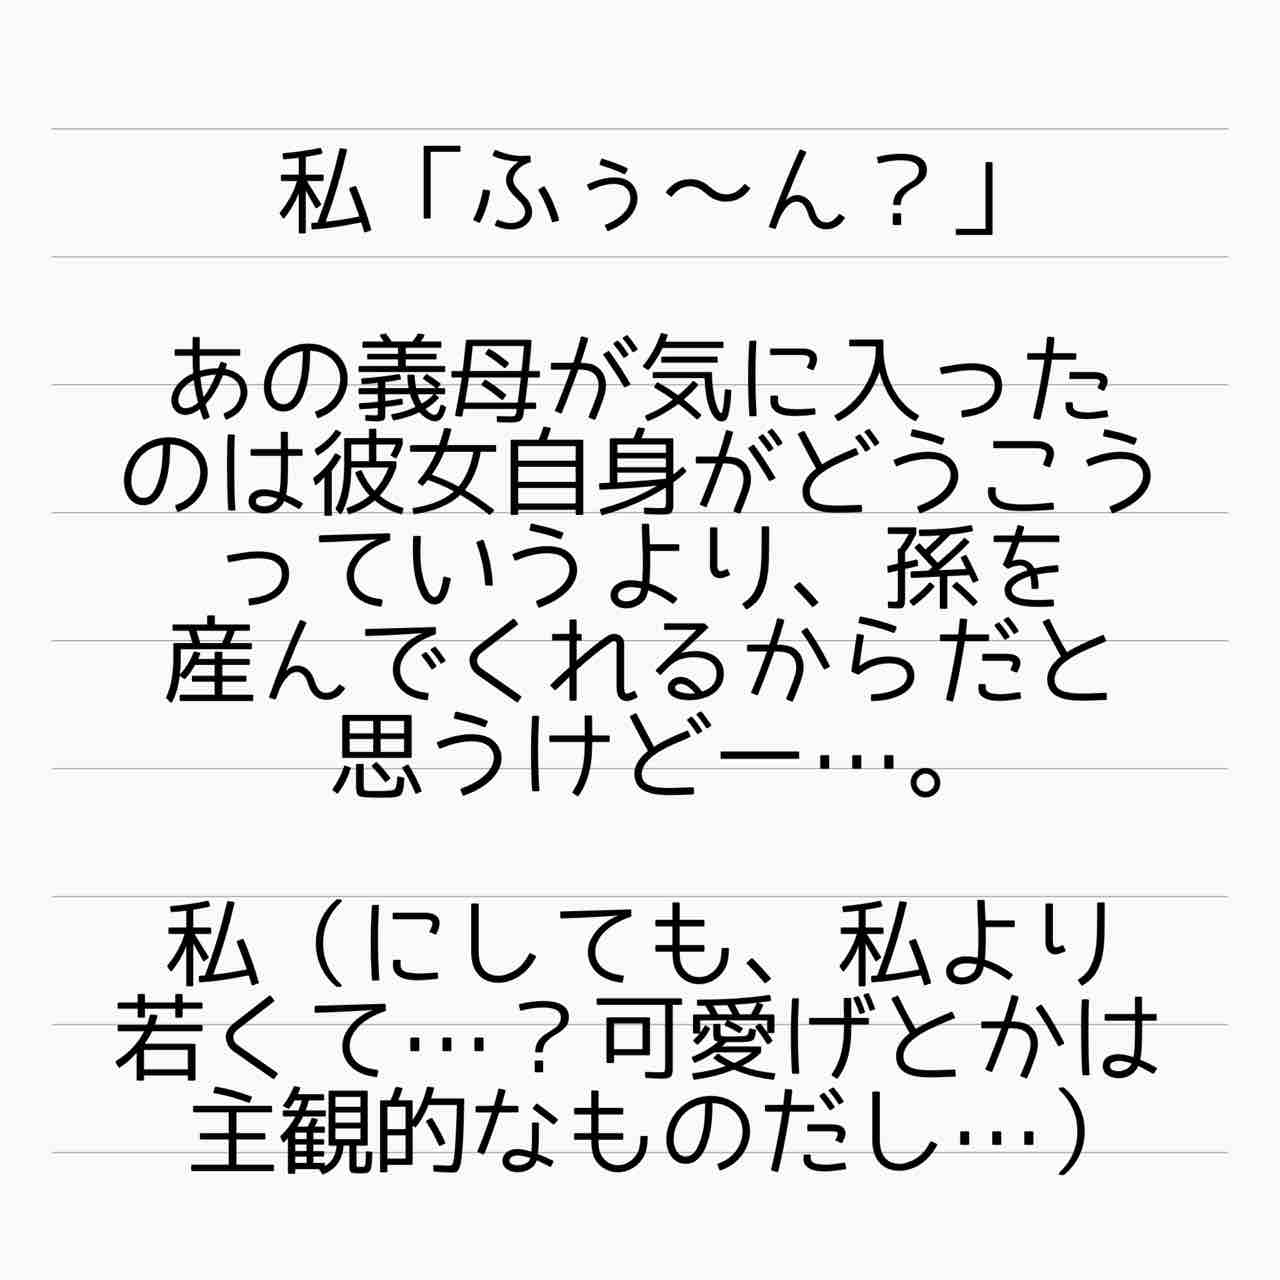 私「ふぅ〜ん？」
あの義母が気に入った
のは彼女自身がどうこう
っていうより、孫を
産んでくれるからだと
思うけどー…。
私（にしても、私より
若くて…？可愛げとかは
主観的なものだし…）